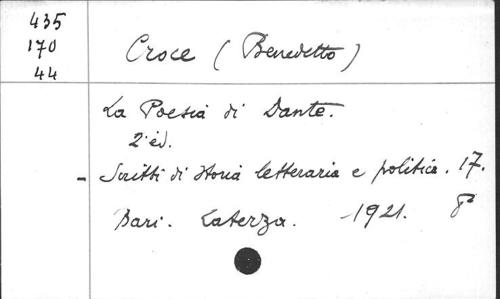 435
170
44
Croce (Benedetto)
La Poesia di Dante.
2 éd.
- Scritti di storia letteraria e politica. 17.
Bari. Laterza. -1921. 8º